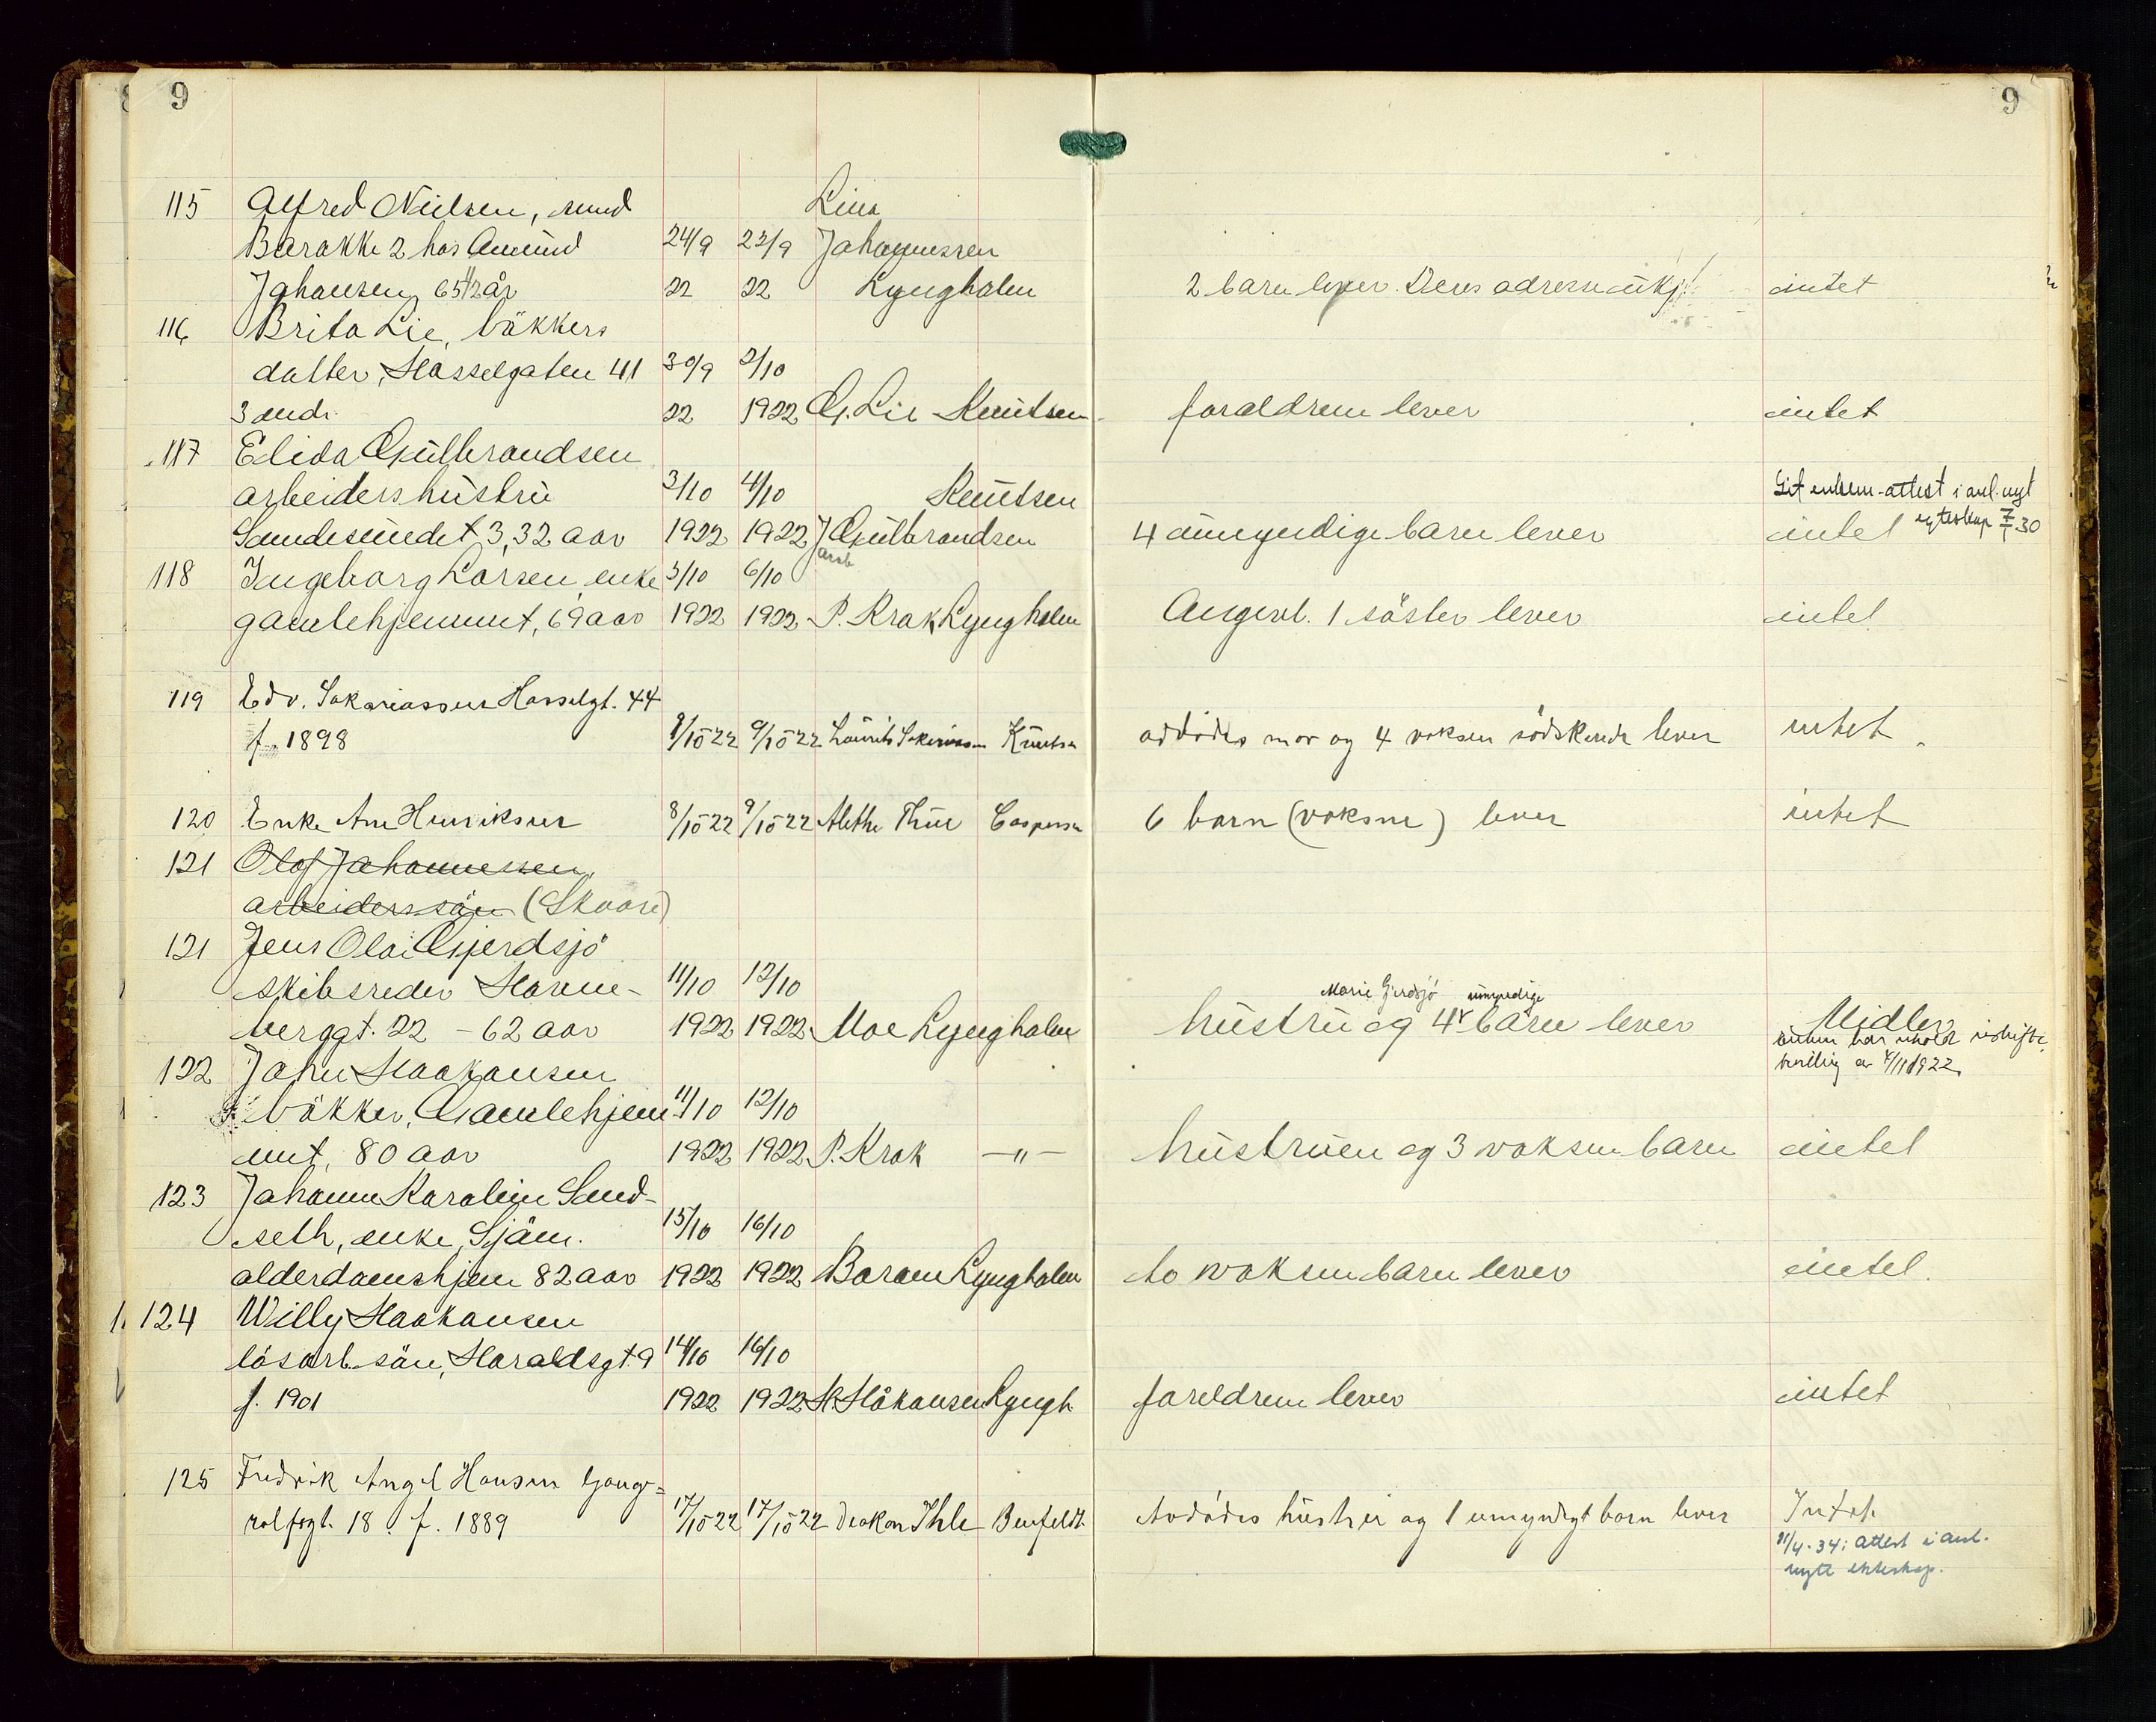 9
9
115 Alfred Nielsen, Lina
Barakke 2 hos Amund 24/9 22/9 Johannessen
Johansen, 65 1/2 år 22 22 Lyngholm 2 barn lever. Deres adresse intet
116 Brita Lie, bäkkers
datter, Hasselgaten 41 30/9 2/10
3 mdr. 22 1922 G. Lie Knutsen foraldrene lever intet
117 Elida Gulbrandsen
arbeidershustru 3/10 4/10 Knutsen attest i anl. nyt
Sandesundet 3, 32 aar 1922 1922 J Gulbrandsen 4 umyndige barn lever intet egteskap 30
arb
118 Ingeborg Larsen, enke 5/10 6/10
gamlehjemmet, 69 aar 1922 1922 P. Krak Lyngholm Angivl. 1 söster lever intet
119 Edv. Sakariassen Hasselgt. 44
f. 1898 8/10 22 9/10 22 Laurits Sakariassen Knutsen avdödes mor og 4 voksen södskende lever intet
120 Enke Ane Henriksen 8/10 22 9/10 22 Alethe Thue Caspersen 6 barn (voksne) lever intet
121 Olaf Johannessen,
arbeiderssön (Skaare)
121 Jens Olai Gjerdsjö
skibsreder Havne- 11/10 12/10 Marie Gjerdsjö umyndige
berggt. 22 - 62 aar 1922 1922 Moe Lyngholm hustru og 4 barn lever Midler
enken har uskifte
bevilling av 1922
122 John Haakonsen
bäkker, Gamlehjem- 11/10 12/10
met, 80 aar 1922 1922 P. Krak -"- hustruen og 3 voksne barn intet
123 Johanne Karoline Sand-
seth, enke, Sjöm. 15/10 16/10
alderdomshjem 82 aar 1922 1922 Barom Lyngholm to voksne barn lever intet
124 Willy Haakonsen
lösarb. sön, Haraldsgt. 9 14/10 16/10
f. 1901 1922 1922 H. Håkonsen Lyngh. foreldrene lever intet
125 Fredrik Angel Hansen Gange-
rolfsgt. 18 f. 1889 17/10 22 17/10 22 Diakon Ihle Benfeldt Avdödes hustru og 1 umyndigt barn lever Intet
11/4-34: attest i anl.
nytt ekteskap.